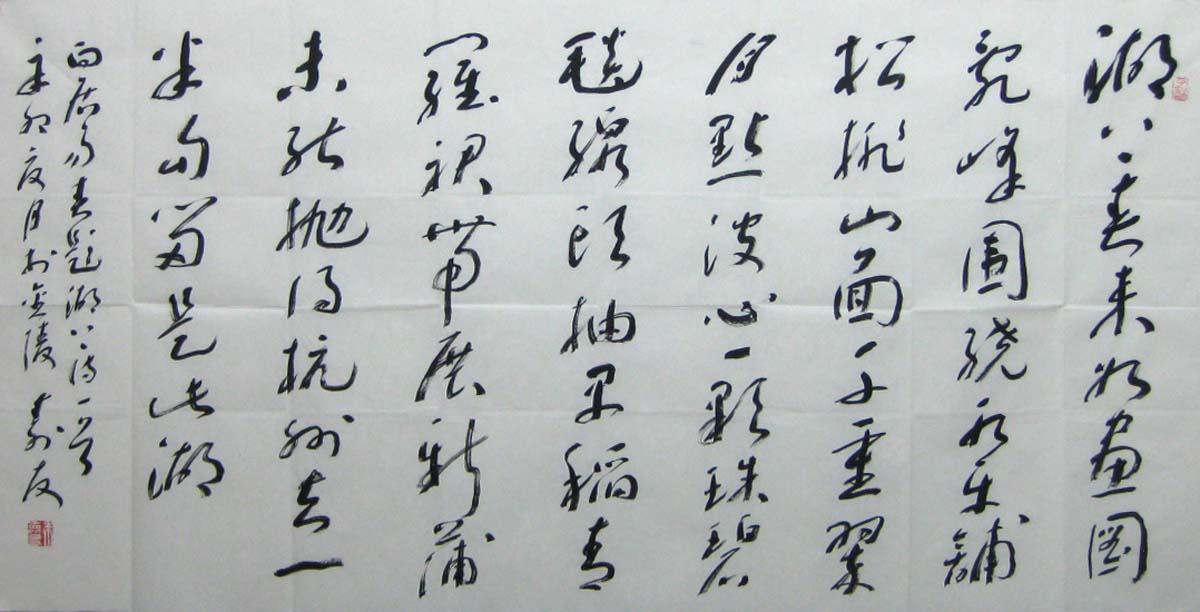 湖上春来似畫圖
亂峰圍繞水平舖
松排山面千重翠
月點波心一顆珠碧
毯線頭抽早稻青
羅裙帶展新蒲
未能抛得杭州去一
半勾留是此湖
白居易春題湖上詩一首
辛卯夏月於金陵 友